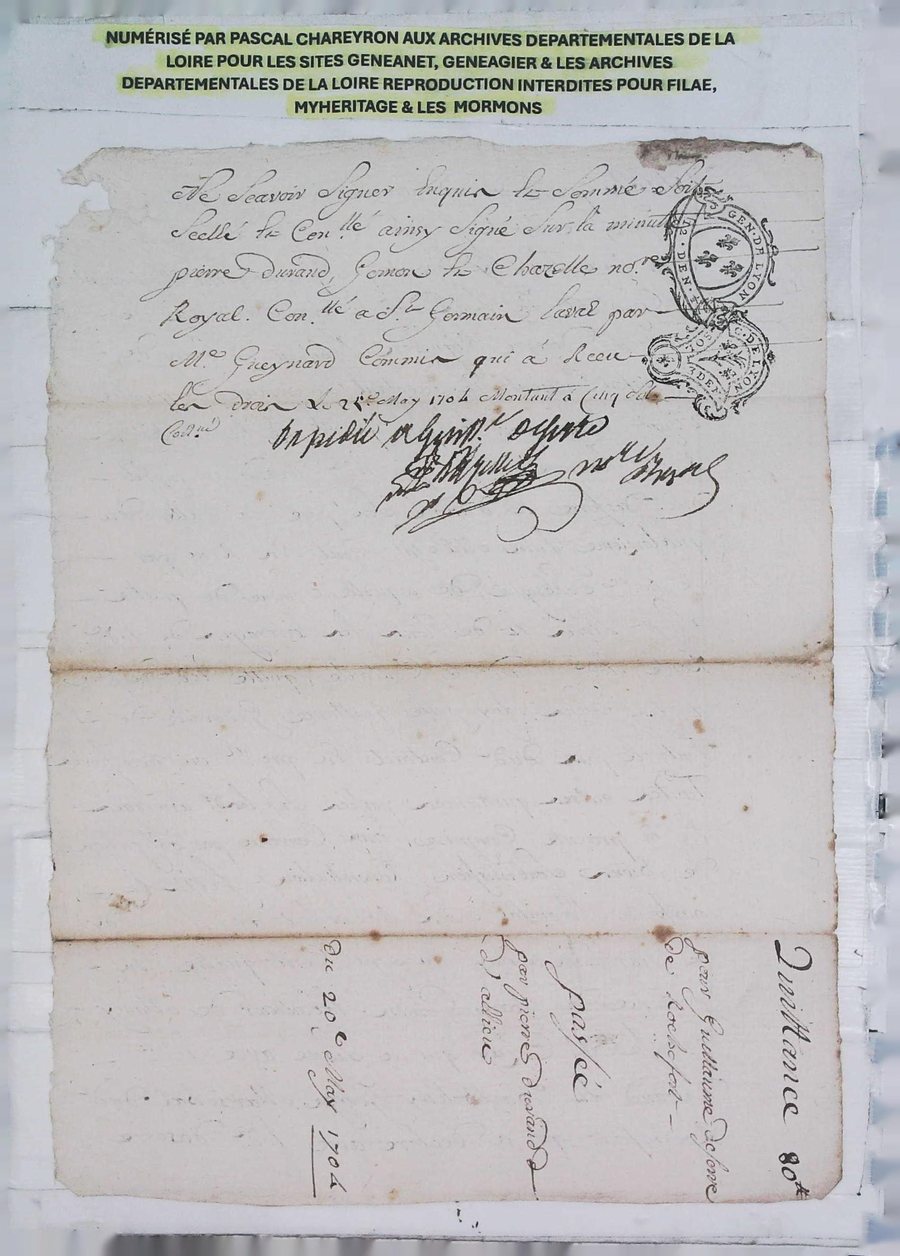 NUMÉRISÉ PAR PASCAL CHAREYRON AUX ARCHIVES DEPARTEMENTALES DE LA
LOIRE POUR LES SITES GENEANET, GENEAGIER & LES ARCHIVES
DEPARTEMENTALES DE LA LOIRE REPRODUCTION INTERDITES POUR FILAE,
MYHERITAGE & LES MORMONS
Ne Scavoir Signer Enquis et Sommé Soit
Scellé et Con.llé ainsy Signé Sur la minutte
pierre durand, Gomon et Chazelle no.re
Royal. Con.llé a St Germain Laval par
Me Gueynard Commis qui á Receu
les drois Le 21e May 1704 Montant a Cinq
GEN. DE LYON
DEN.
G. DE LION
DEN
Expédié
Quittance 80
pour Guillaume
de Rochefort
passée
par pierre durand
d'allieu
du 20e May 1704